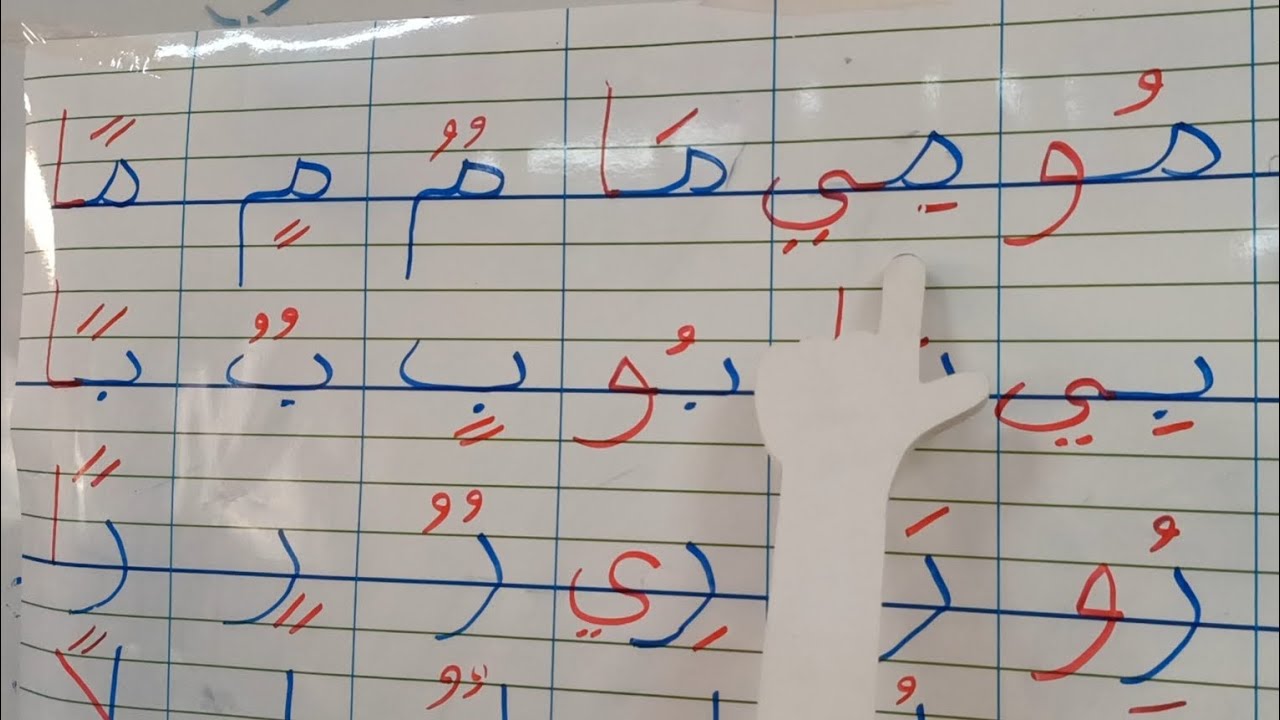 مُو مِي مَا مٌ مٍ مًا
بِي بُو بٍ بٌ بًا
رُو رَ رِي رٌ رٍ رًا